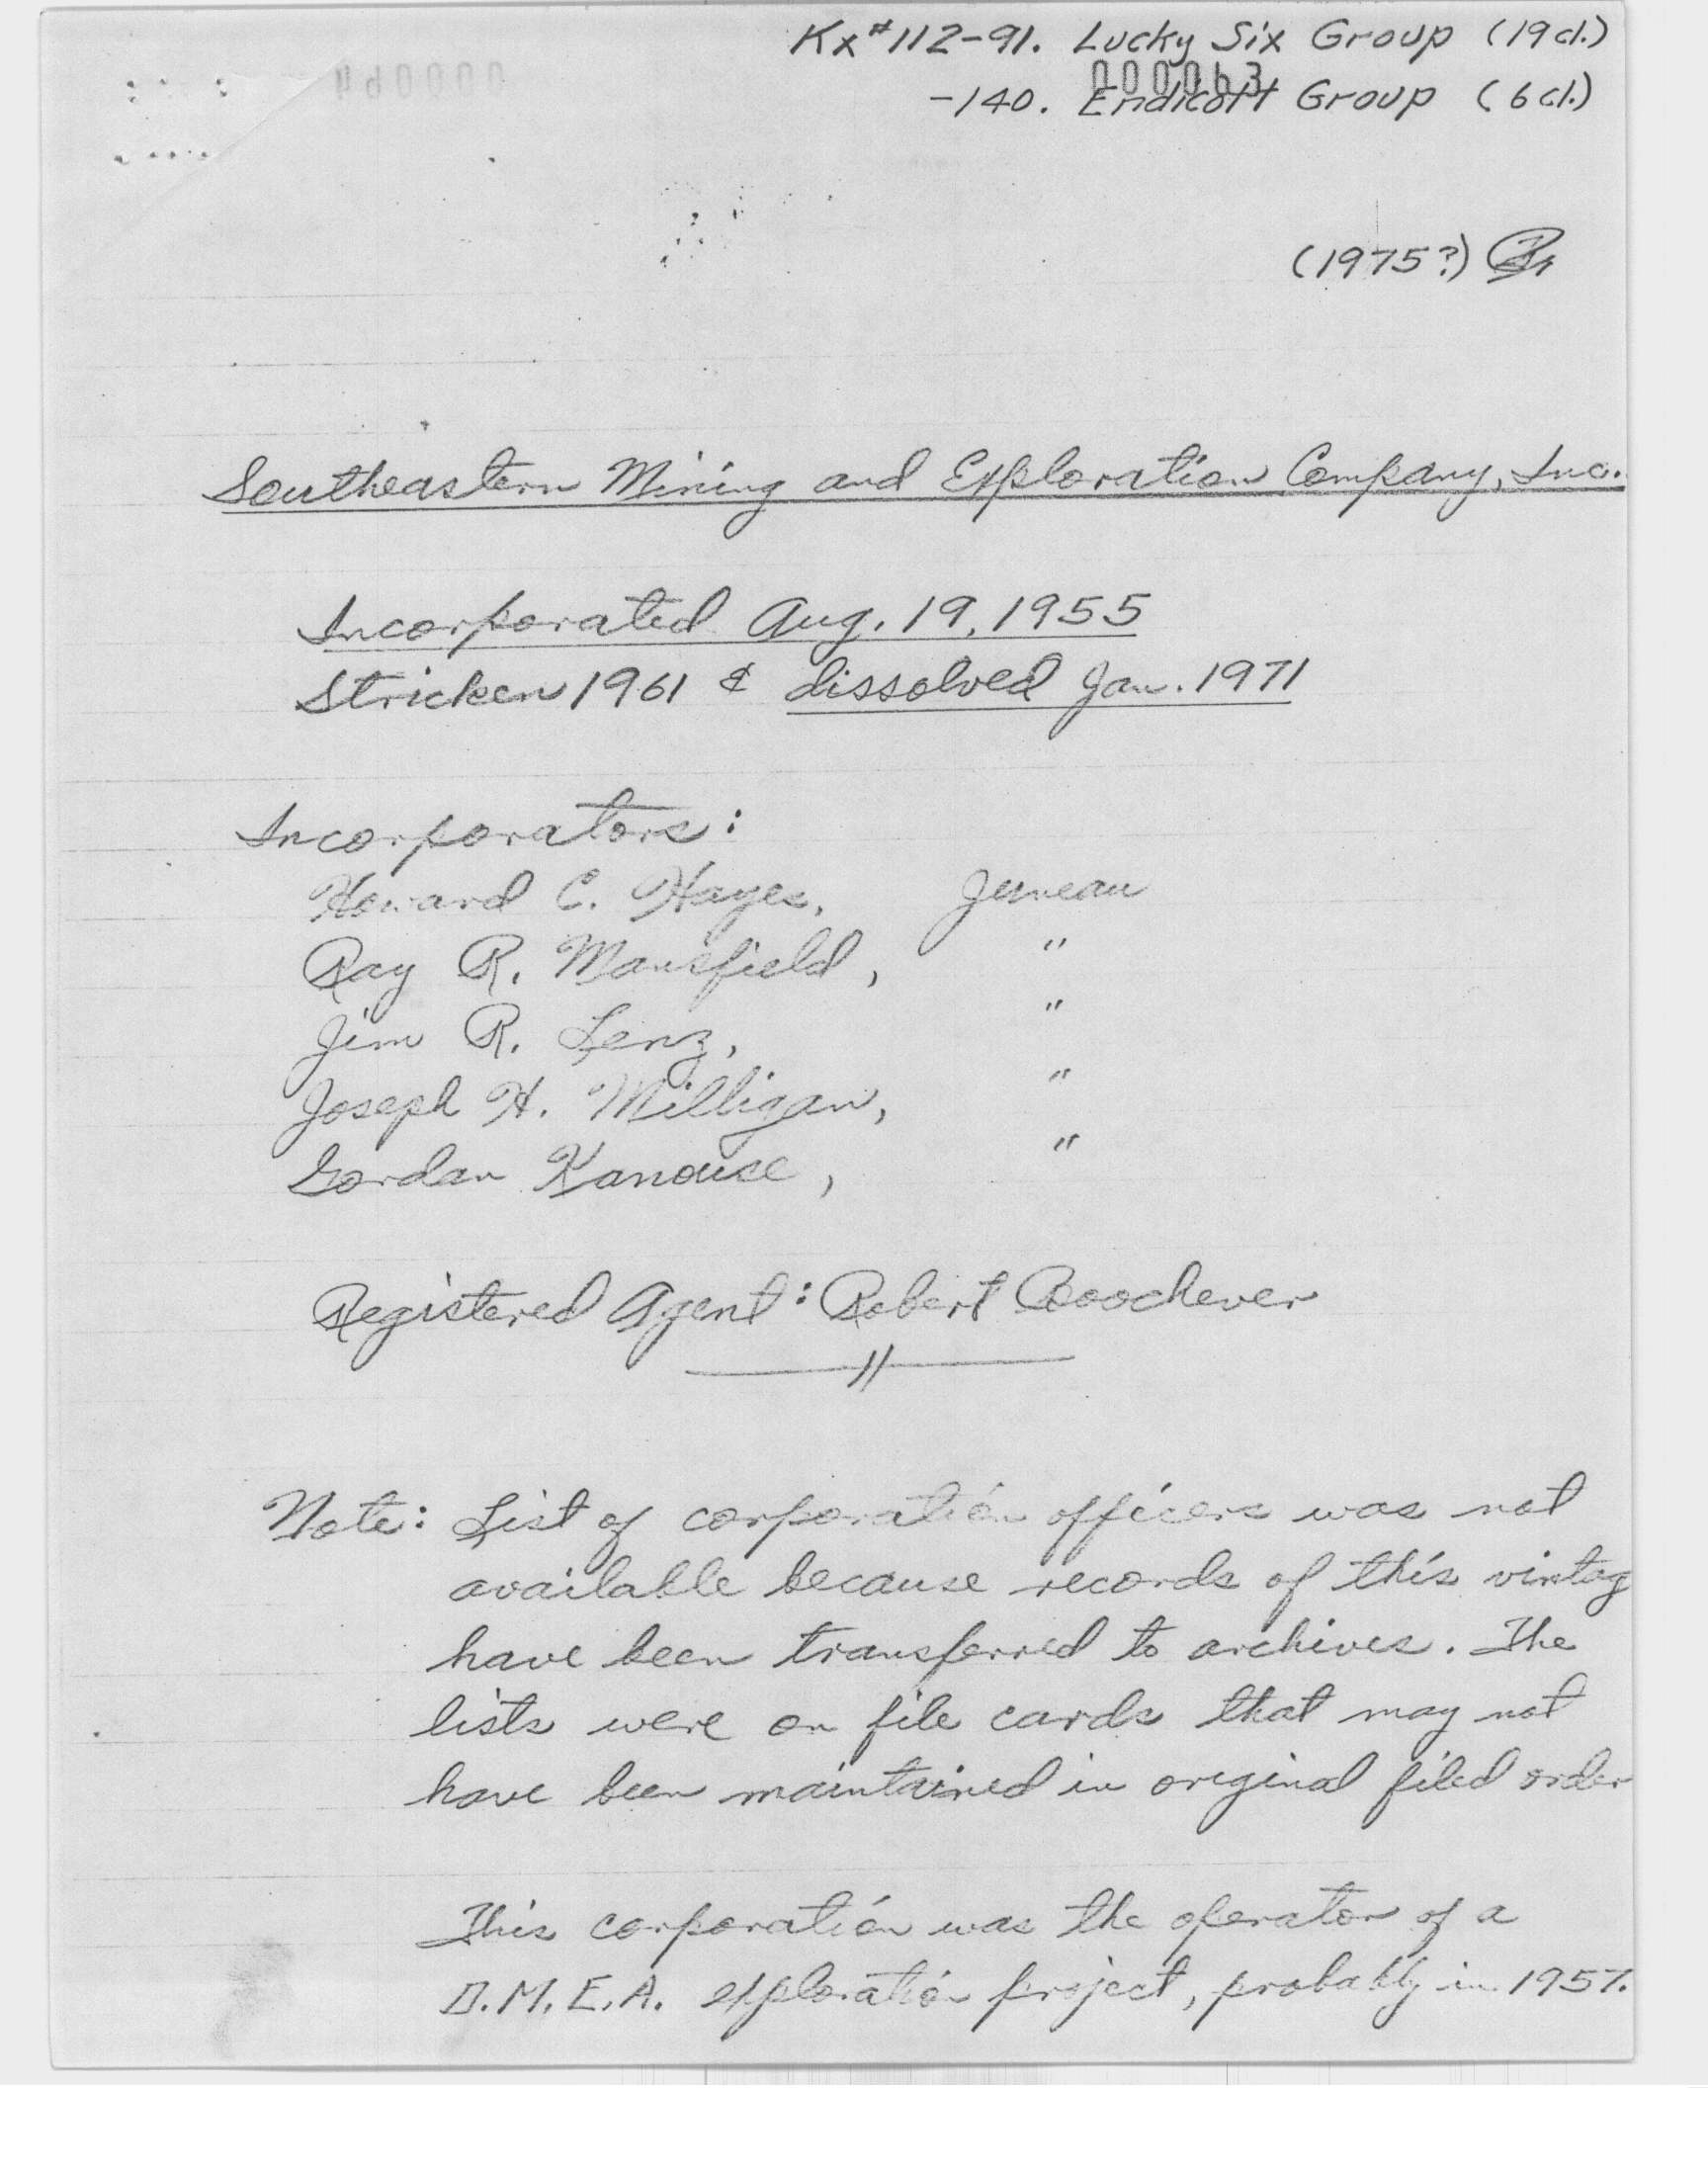 Kx#112-91. Lucky Six Group (19 cl.)
000063
-140. Endicott Group (6 cl.)
(1975?)
Southeastern Mining and Exploration Company, Inc.
Incorporated Aug. 19, 1955
Stricken 1961 & dissolved Jan. 1971
Incorporators:
Howard C. Hayes, Juneau
Ray R. Mansfield, "
Jim R. Lenz, "
Joseph H. Milligan, "
Gordan Kanouse, "
Registered Agent: Robert Boochever
Note: List of corporation officers was not
available because records of this vintag
have been transferred to archives. The
lists were on file cards that may not
have been maintained in original filed order
This corporation was the operator of a
D.M.E.A. exploration project, probably in 1957.